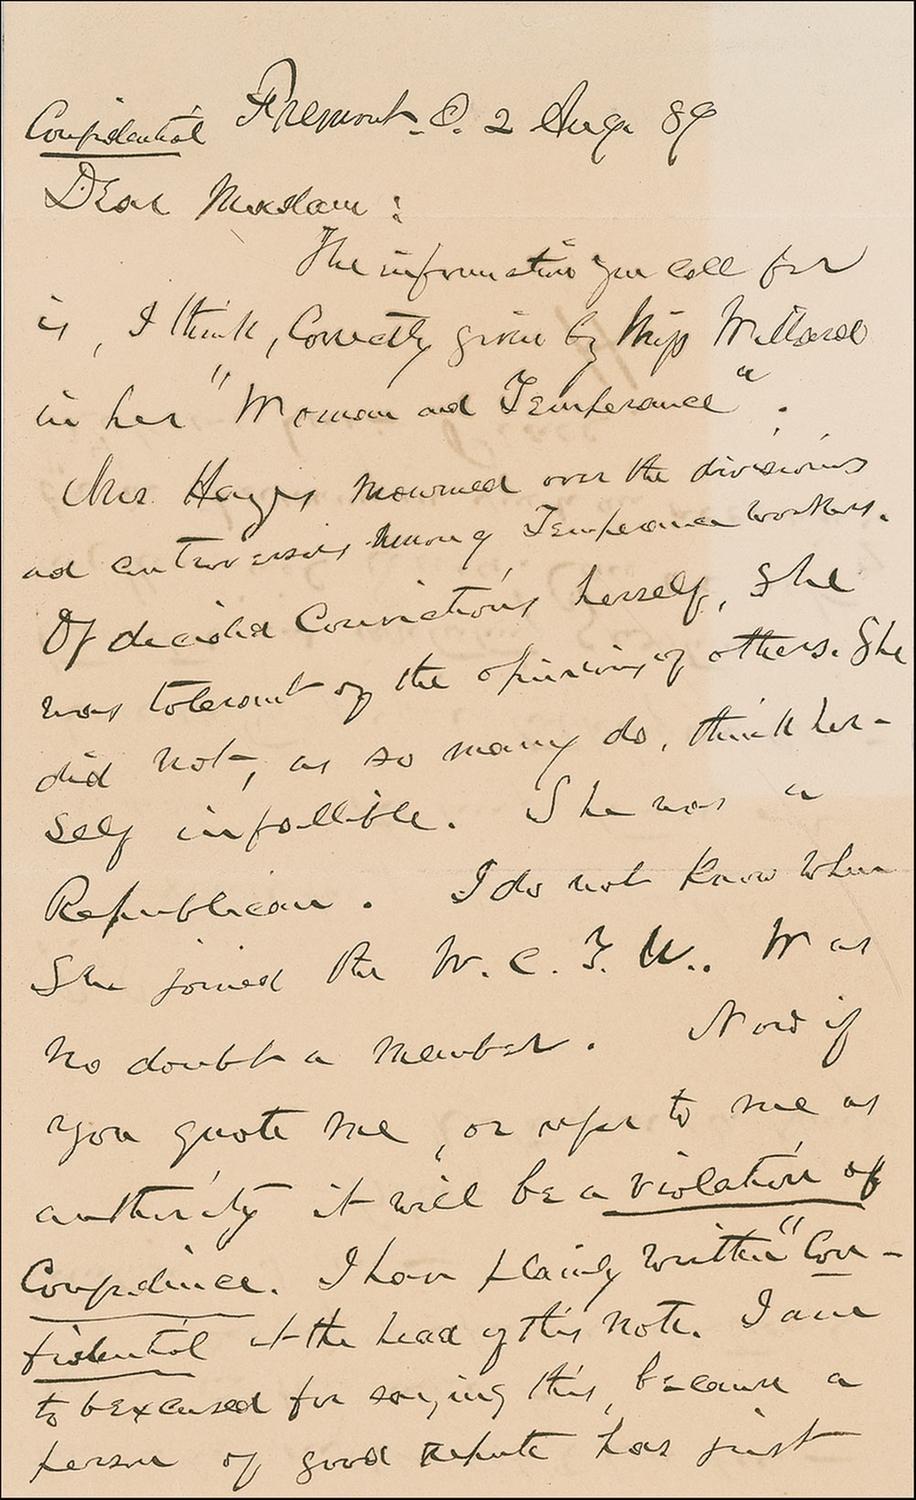 Confidential Fremont. O. 2 Aug. 89
Dear Madam:
The information you call for
is, I think, correctly given by Miss Willard
in her "Woman and Temperance".
Mrs. Hayes mourned over the divisions
and controversies among Temperance workers.
Of decided convictions herself, she
was tolerant of the opinions of others. She
did not, as so many do, think her-
self infallible. She was a
Republican. I do not know when
she joined the W. C. T. U.. Was
no doubt a member. Now if
you quote me, or refer to me as
authority it will be a violation of
Confidence. I have plainly written "Con-
fidential at the head of this note. I am
to be excused for saying this, because a
person of good repute has just